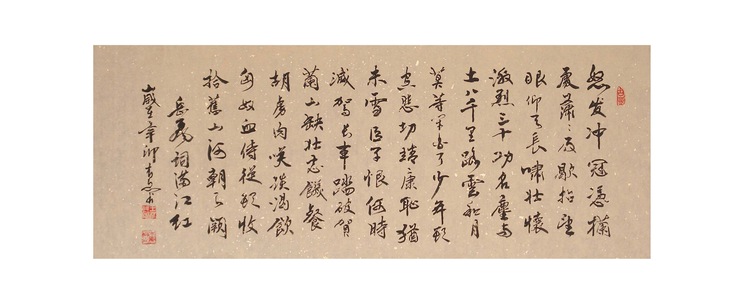 怒发冲冠凭栏
处萧萧雨歇抬望
眼仰天长啸壮怀
激烈三十功名尘与
土八千里路云和月
莫等闲白了少年头
空悲切靖康耻犹
未雪臣子恨何时
灭驾长车踏破贺
兰山缺壮志饥餐
胡虏肉笑谈渴饮
匈奴血待从头收
拾旧山河朝天阙
岳飞词满江红
岁在辛卯